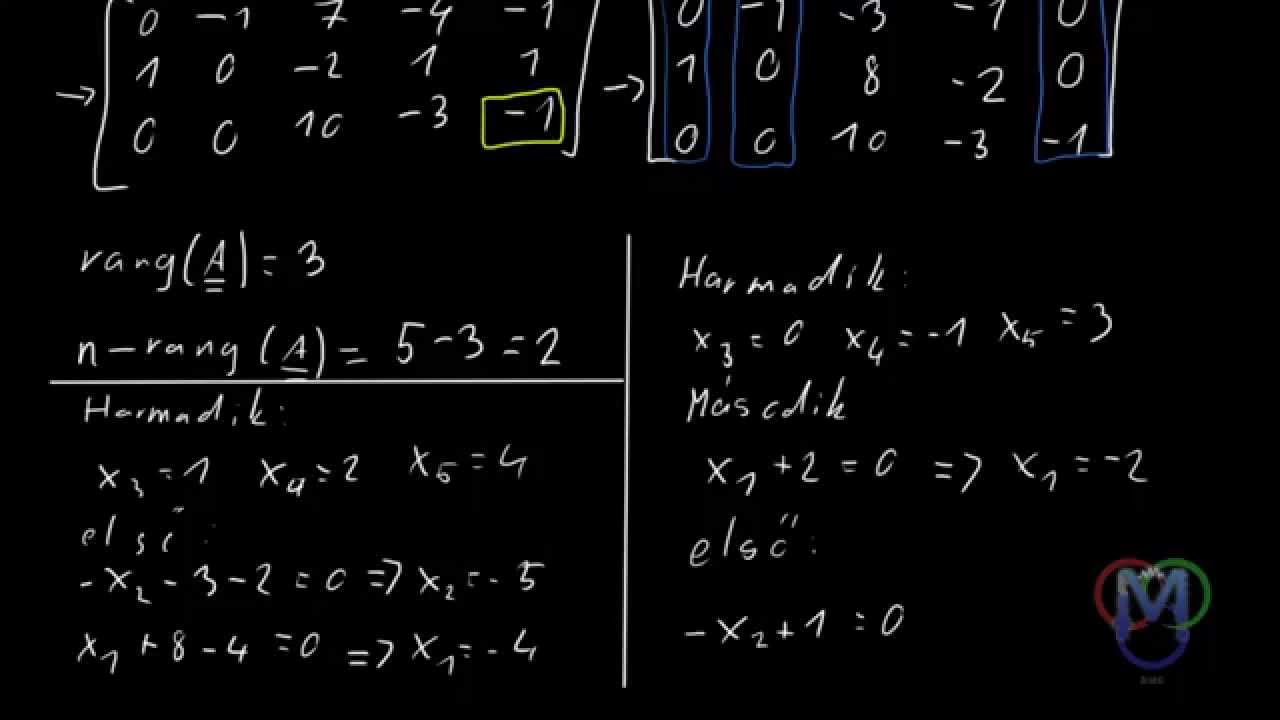 0 -1 7 -4 -1
→ 1 0 -2 1 1
0 0 10 -3 -1
0 -1 -3 -1 0
→ 1 0 8 -2 0
0 0 10 -3 -1
rang(A) = 3
n-rang(A) = 5-3 = 2
Harmadik:
x₃=1 x₄=2 x₅=4
első:
-x₂-3-2=0 => x₂=-5
x₁+8-4=0 => x₁=-4
Harmadik:
x₃=0 x₄=-1 x₅=3
Második
x₁+2=0 => x₁=-2
első:
-x₂+1=0
M